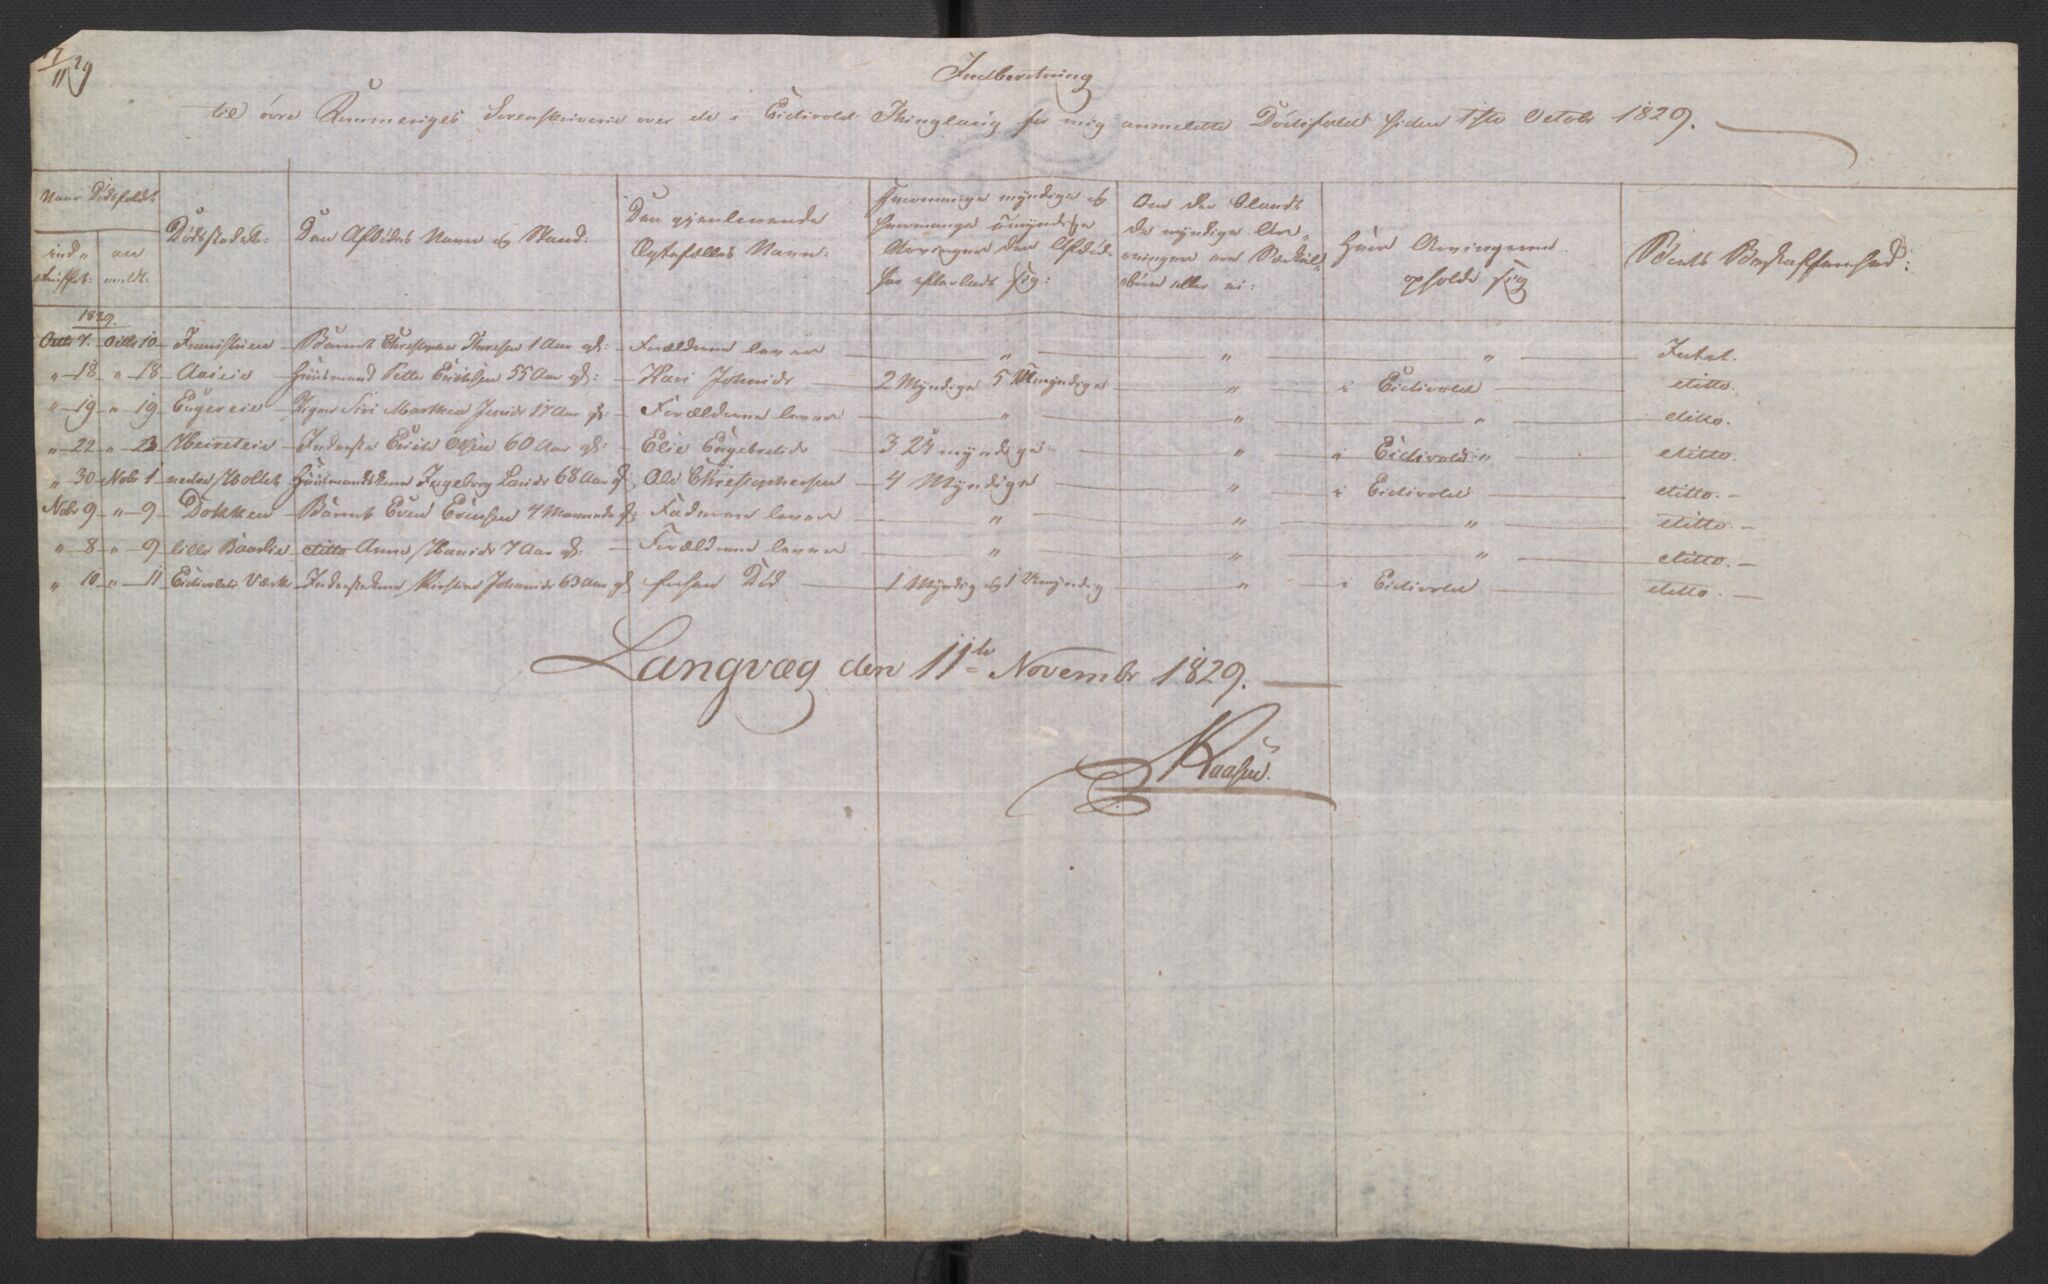 17/11 29
Indberetning
til øvre Rommeriges Sorenskriverie over de i Eidsvold Thinglaug for mig anmeldte Dødsfald siden 1ste Octobr 1829.
Naar Dødsfaldet
ind„ an
„truffet: meldt:
Dødsstedet:
Den Afdødes Navn og Stand:
Den gjenlevende
Ægtefælles Navn:
Hvormange myndige og
hvormange umyndige
Arvinger den Afdøde
har efterladt sig:
Om der blandt
de myndige Ar„
„vinger er
eller ei:
Hvor Arvingerne
opholde sig
Boets Beskaffenhed:
1829.
Octbr 7. Octbr 10 Barnet Christopher 1 Aar gl: Forældrene lever „ „ „ Intet.
„ 18 „ 18 Huusmand Peder Erichsen 55 Aar gl: Kari 2 Myndige 5 Umyndige „ i Eidsvold ditto.
„ 19 „ 19 Pigen Siri Marthea 17 Aar gl: Forældrene lever „ „ „ ditto.
„ 22 „ 23 Inderste Erich Olsen 60 Aar gl: Elie Engebretsdr 3 Umyndige „ i Eidsvold „ ditto.
„ 30 Nobr 1 nedre Holtet Huusmandskone Ingeborg Larsdr 68 Aar gl: Ole Christophersen 4 Myndige „ i Eidsvold ditto.
Nobr 9 „ 9 Dokken Barnet Even Evensen 4 Maaneder gl: lever „ „ „ ditto.
„ 8 „ 9 lille ditto Anne Hansdr 7 Aar gl: Forældrene lever „ „ „ ditto.
„ 10 „ 11 Eidsvolds Værk Inderstekone Kirstine Johansdr 63 Aar gl: forhen Død 1 Myndig og 1 Umyndig „ i Eidsvold ditto.
Langvæg den 11te Novembr 1829.
Kaasen.